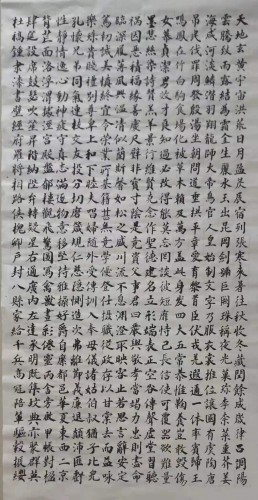 天地玄黄宇宙洪荒日月盈昃辰宿列張寒来暑往秋冬收藏閏餘成歲律呂調陽
雲騰致雨露結為霜金生麗水玉出崑岡劍號巨闕珠稱夜光菓珍李柰菜重芥薑
海鹹河淡鱗潛羽翔龍師火帝鳥官人皇始制文字乃服衣裳推位讓國有虞陶唐
弔民伐罪周發殷湯坐朝問道垂拱平章愛育黎首臣伏戎羌遐邇壹體率賓歸王
鳴鳳在樹白駒食場化被草木賴及萬方蓋此身髮四大五常恭惟鞠養豈敢毀傷
女慕貞潔男效才良知過必改得能莫忘罔談彼短靡恃己長信使可覆器欲難量
墨悲絲染詩讚羔羊景行維賢克念作聖德建名立形端表正空谷傳聲虛堂習聽
禍因惡積福緣善慶尺璧非寶寸陰是競資父事君曰嚴與敬孝當竭力忠則盡命
臨深履薄夙興溫凊似蘭斯馨如松之盛川流不息淵澄取映容止若思言辭安定
篤初誠美慎終宜令榮業所基籍甚無竟學優登仕攝職從政存以甘棠去而益詠
樂殊貴賤禮別尊卑上和下睦夫唱婦隨外受傅訓入奉母儀諸姑伯叔猶子比兒
孔懷兄弟同氣連枝交友投分切磨箴規仁慈隱惻造次弗離節義廉退顛沛匪虧
性靜情逸心動神疲守真志滿逐物意移堅持雅操好爵自縻都邑華夏東西二京
背邙面洛浮渭據涇宮殿盤鬱樓觀飛驚圖寫禽獸畫彩仙靈丙舍傍啟甲帳對楹
肆筵設席鼓瑟吹笙升階納陛弁轉疑星右通廣內左達承明既集墳典亦聚群英
杜稿鍾隸漆書壁經府羅將相路俠槐卿戶封八縣家給千兵高冠陪輦驅轂振纓